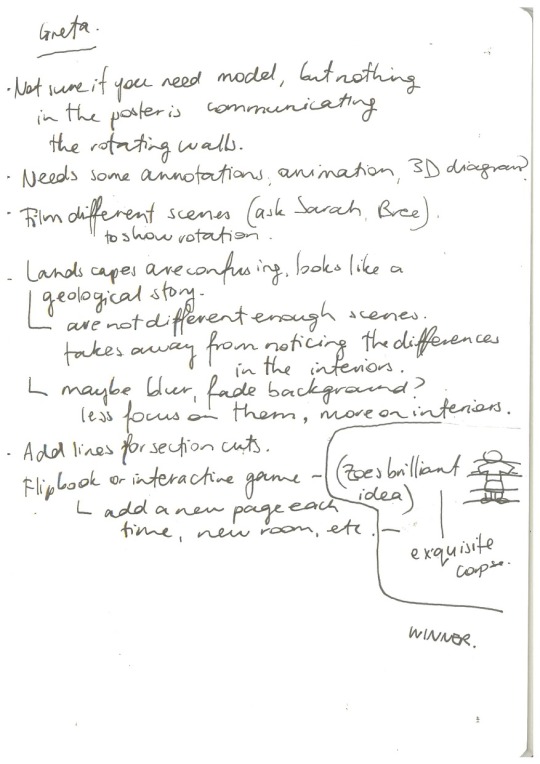 Greta.
· Not sure if you need model, but nothing
in the poster is communicating
the rotating walls.
· Needs some annotations, animation, 3D diagram?
· Film different scenes (ask Sarah, Bree).
to show rotation.
- Landscapes are confusing, looks like a
geological story.
are not different enough scenes.
takes away from noticing the differences
in the interiors.
maybe blur, fade background?
less focus on them, more on interiors.
· Add lines for section cuts.
Flipbook or interactive game - (Zoes brilliant
idea)
add a new page each
time, new room, etc. -
exquisite
corpse.
WINNER.